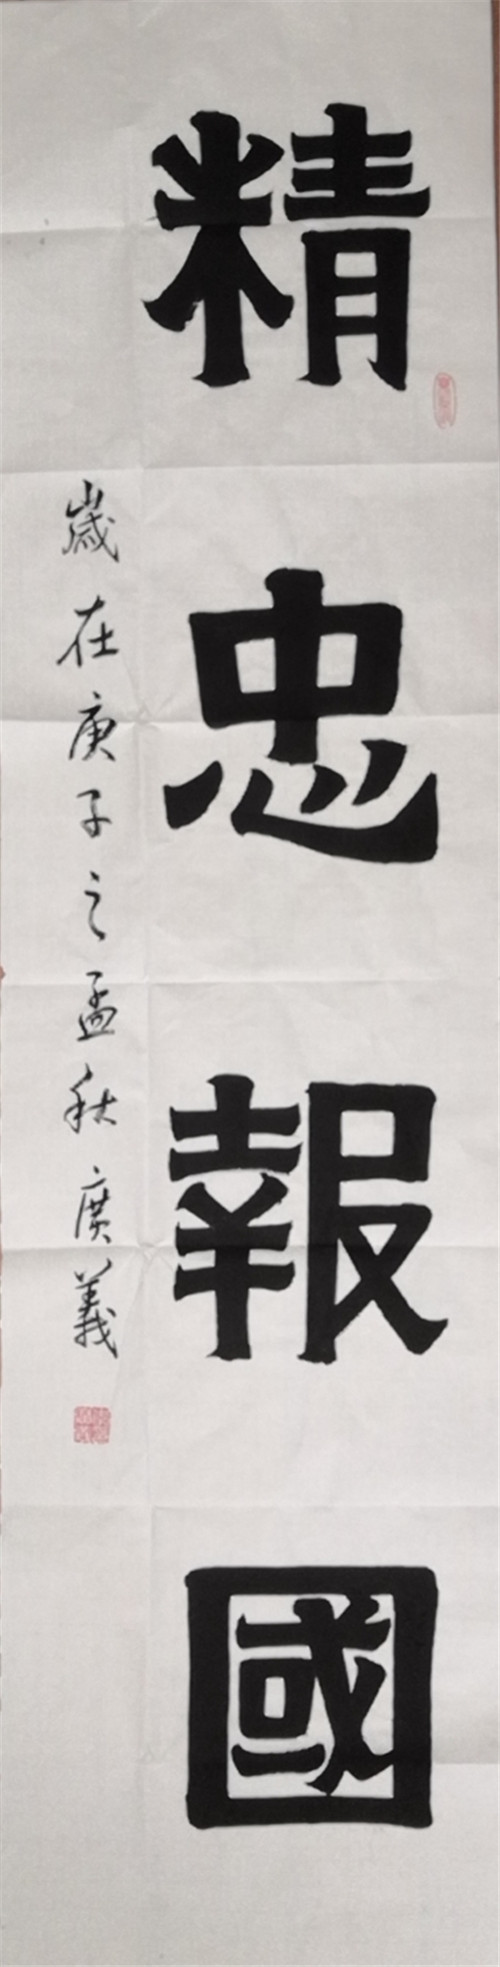 精忠報國
歲在庚子之孟秋廣義